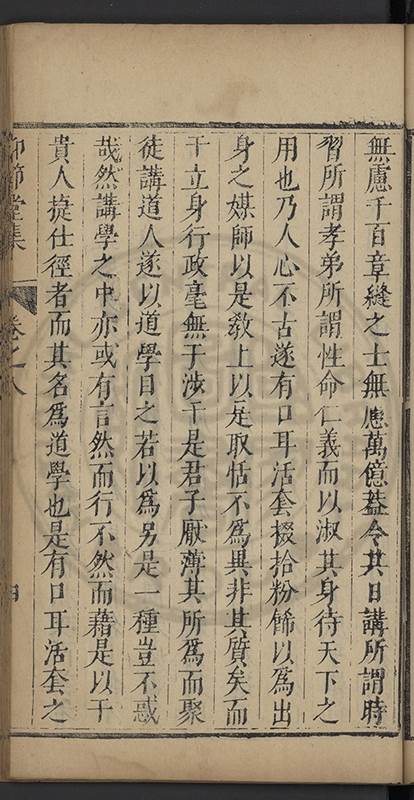 無慮千百章縫之士無慮萬億葢令其日講所謂時
習所謂孝弟所謂性命仁義而以淑其身待天下之
用也乃人心不古遂有口耳活套掇拾粉餙以爲出
身之媒師以是敎上以是取恬不爲異非其質矣而
于立身行政毫無于涉于是君子厭薄其所爲而聚
徒講道人遂以道學目之若以爲另是一種豈不惑
哉然講學之中亦或有言然而行不然而藉是以干
貴人捷仕徑者而其名爲道學也是有口耳活套之
仰節堂集
卷之八
四